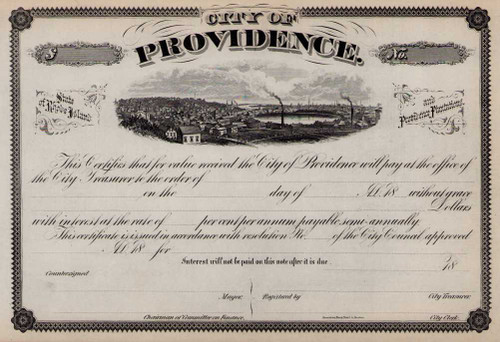 CITY OF
PROVIDENCE.
$
No.
State
of Rhode Island
and
Providence Plantations
This Certifies that for value received the City of Providence will pay at the office of
the City Treasurer to the order of
on the day of A.D. 18 without grace
Dollars
with interest at the rate of per cent per annum, payable semi-annually.
This certificate is issued in accordance with resolution No. of the City Council approved
A.D. 18 for
Interest will not be paid on this note after it is due. 18
Countersigned
Mayor. Registered by City Treasurer.
Chairman of Committee on Finance. City Clerk.